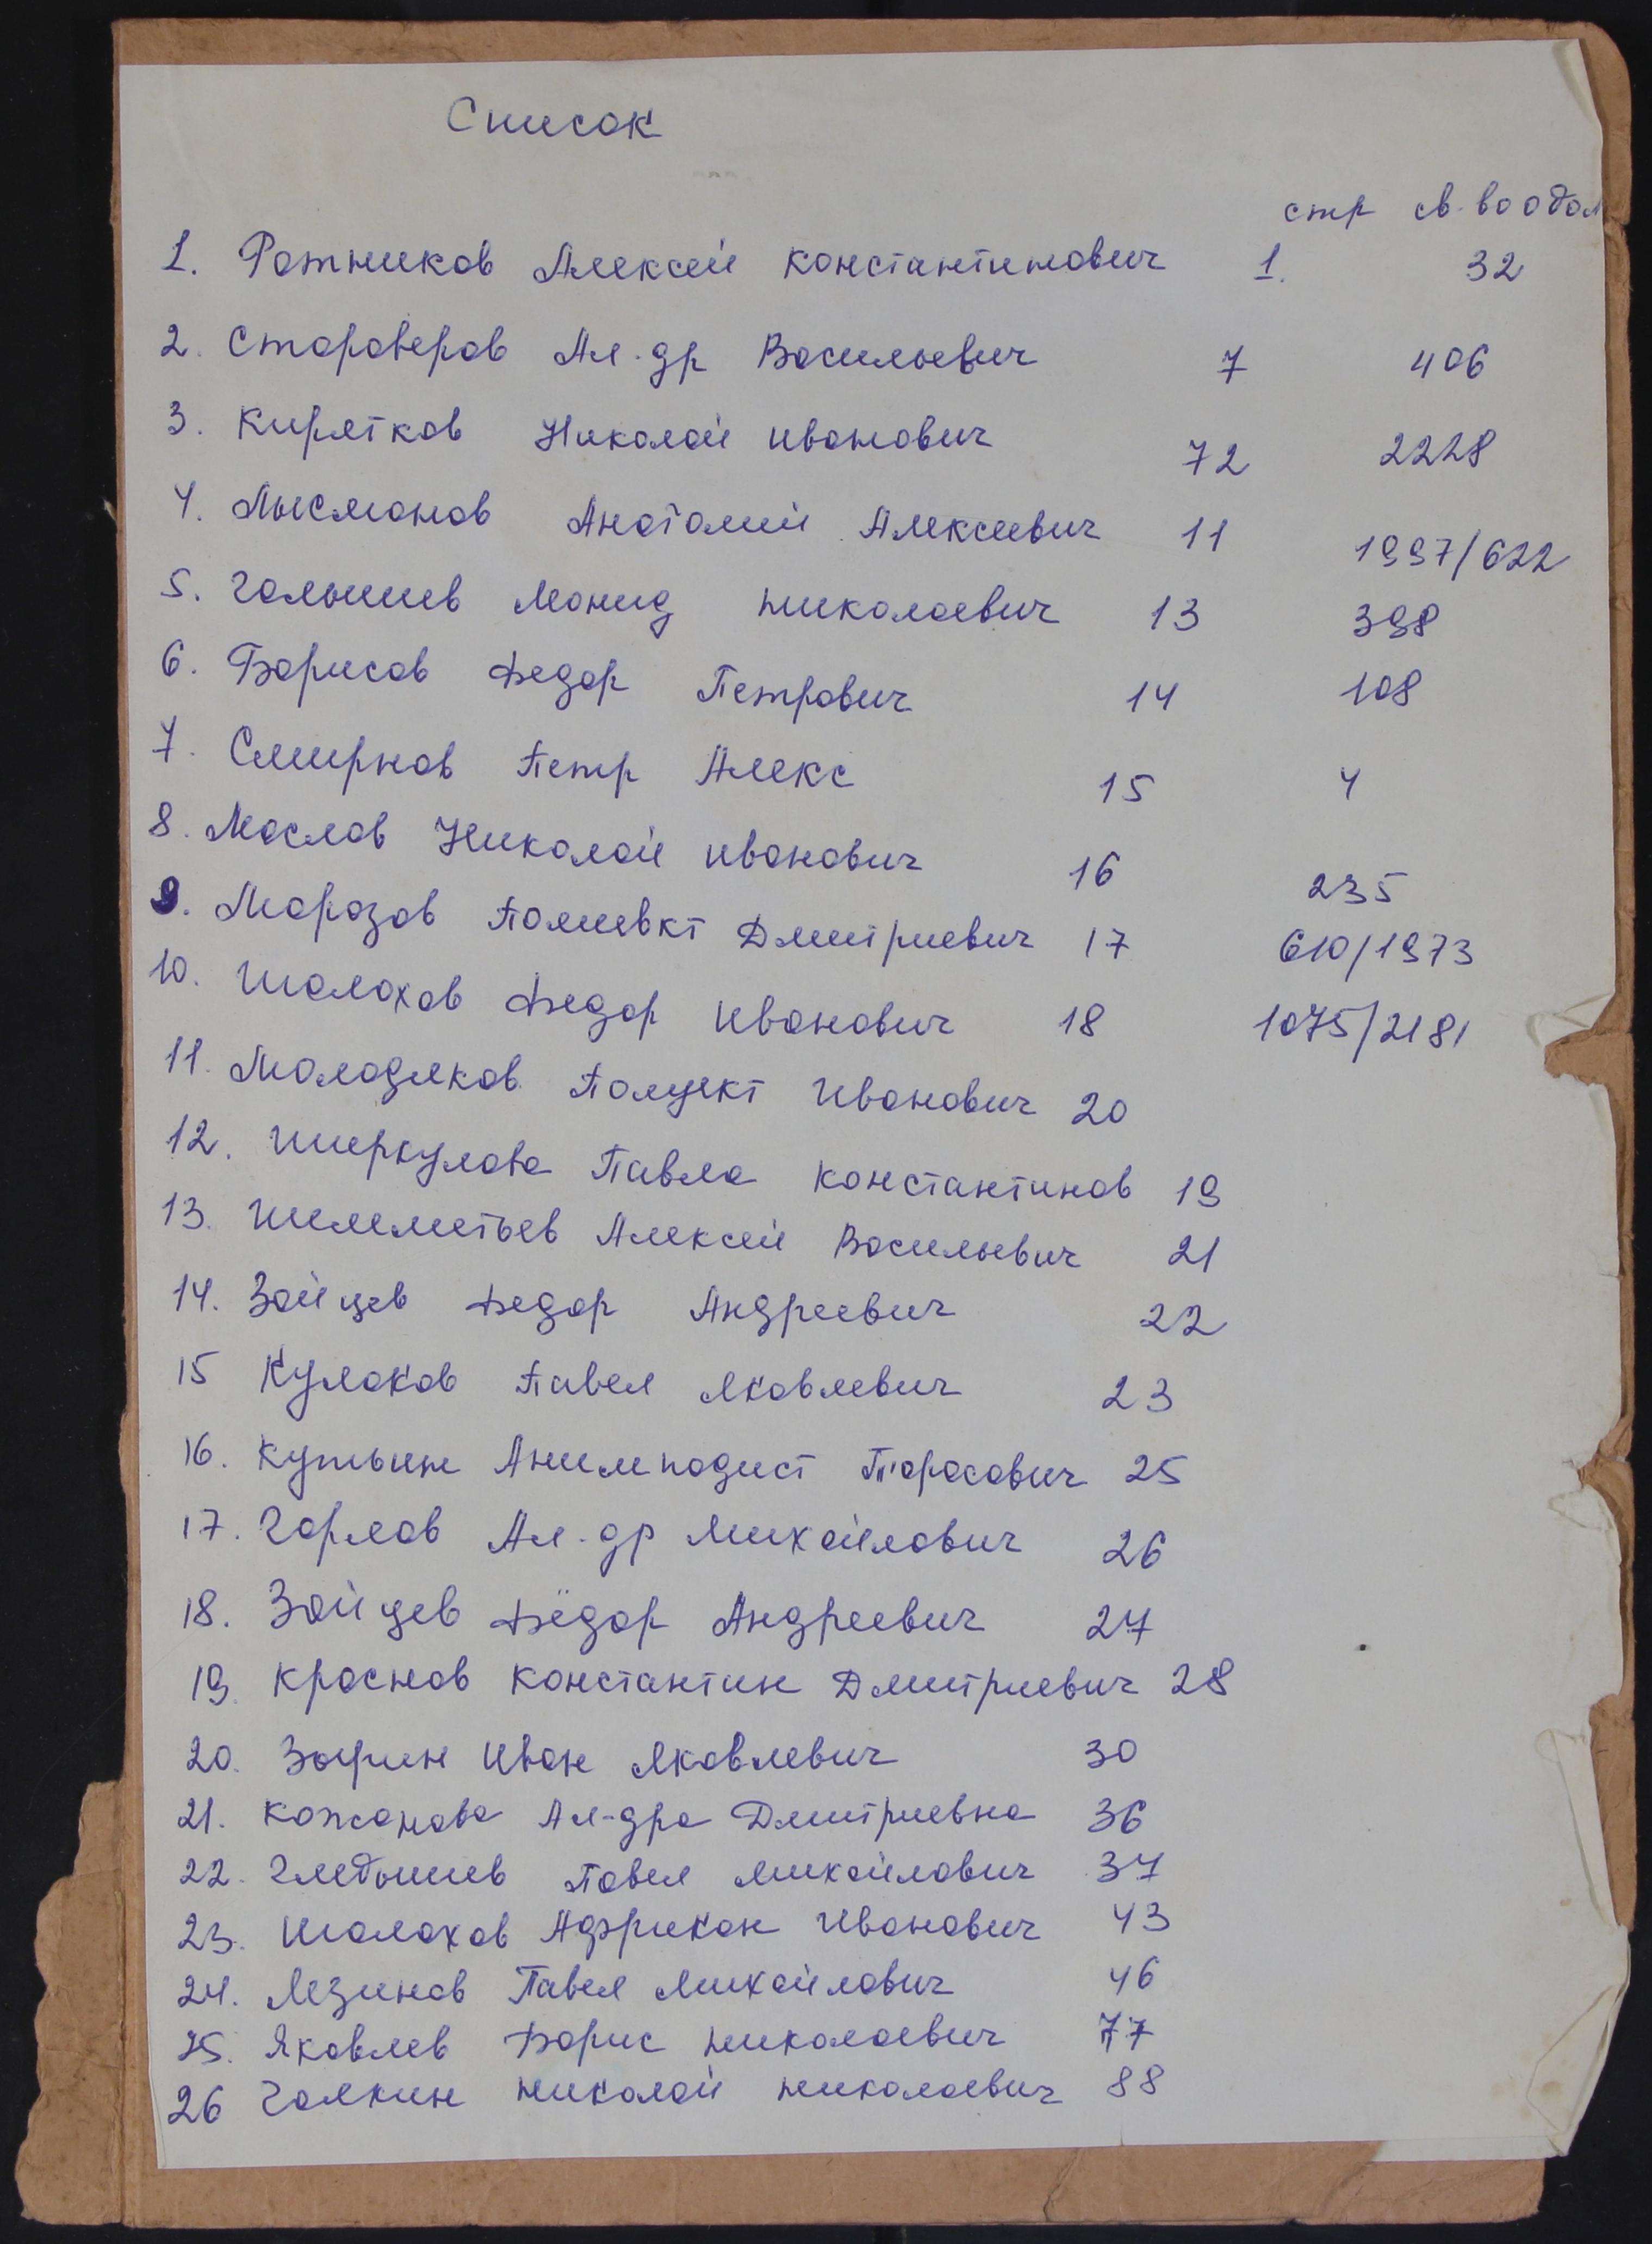 Список
стр св-во одол
1. Ратников Алексей Константинович 1. 32
2. Староверов Ал-др Васильевич 7 406
3. Кирятков Николай Иванович 72 2228
4. Лысманов Анатолий Алексеевич 11 1997/622
5. Галышев Леонид Николаевич 13 398
6. Борисов Федор Петрович 14 108
7. Смирнов Петр Алекс 15 4
8. Маслов Николай Иванович 16 235
9. Морозов Полиевкт Дмитриевич 17 610/1973
10. Шолохов Федор Иванович 18 1075/2181
11. Молодяков Полуект Иванович 20
12. Ширкулова Павла Константинов 19
13. Шелеметьев Алексей Васильевич 21
14. Зайцев Федор Андреевич 22
15 Кулаков Павел Яковлевич 23
16. Кутьин Анимподист Тарасович 25
17. Горлов Ал-др Михайлович 26
18. Зайцев Фёдор Андреевич 27
19. Краснов Константин Дмитриевич 28
20. Зырин Иван Яковлевич 30
21. Кожанова Ал-дра Дмитриевна 36
22. Гледышев Павел Михайлович 37
23. Шолохов Африкан Иванович 43
24. Лезинов Павел Михайлович 46
25. Яковлев Борис Николаевич 77
26 Галкин Николай Николаевич 88